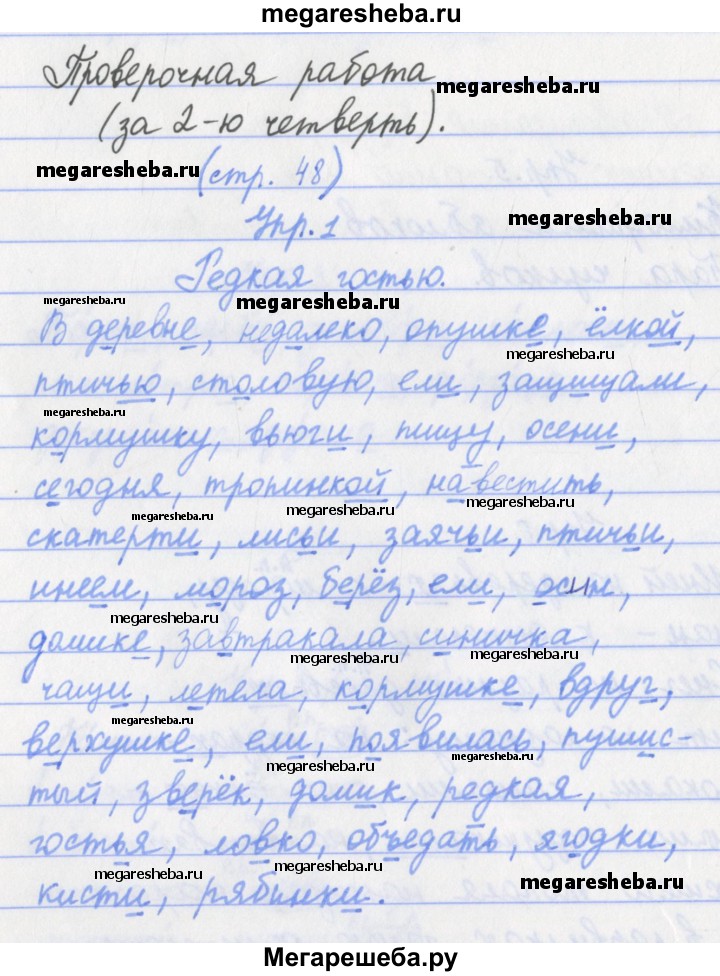 megaresheba.ru
Проверочная работа
megaresheba.ru
(за 2-ю четверть).
megaresheba.ru
(стр. 48)
megaresheba.ru
Упр. 1
Редкая гостью.
megaresheba.ru
megaresheba.ru
В деревне, недалеко, опушке, ёлкой,
megaresheba.ru
птичью, столовую, ели, защищали,
megaresheba.ru
кормушку, вьюги, пищу, осени,
megaresheba.ru
сегодня, тропинкой, навестить,
megaresheba.ru
megaresheba.ru
megaresheba.ru
скатерти, лисьи, заячьи, птичьи,
инеем, мороз, берёз, ели, осин,
megaresheba.ru
домике, завтракала, синичка,
megaresheba.ru
megaresheba.ru
чащи, летела, кормушке, вдруг,
megaresheba.ru
верхушке, ели, появилась, пушис-
megaresheba.ru
megaresheba.ru
тый, зверёк, домик, редкая,
гостья, ловко, объедать, ягодки,
megaresheba.ru
megaresheba.ru
megaresheba.ru
кисти, рябинки.
Мегарешеба.ру